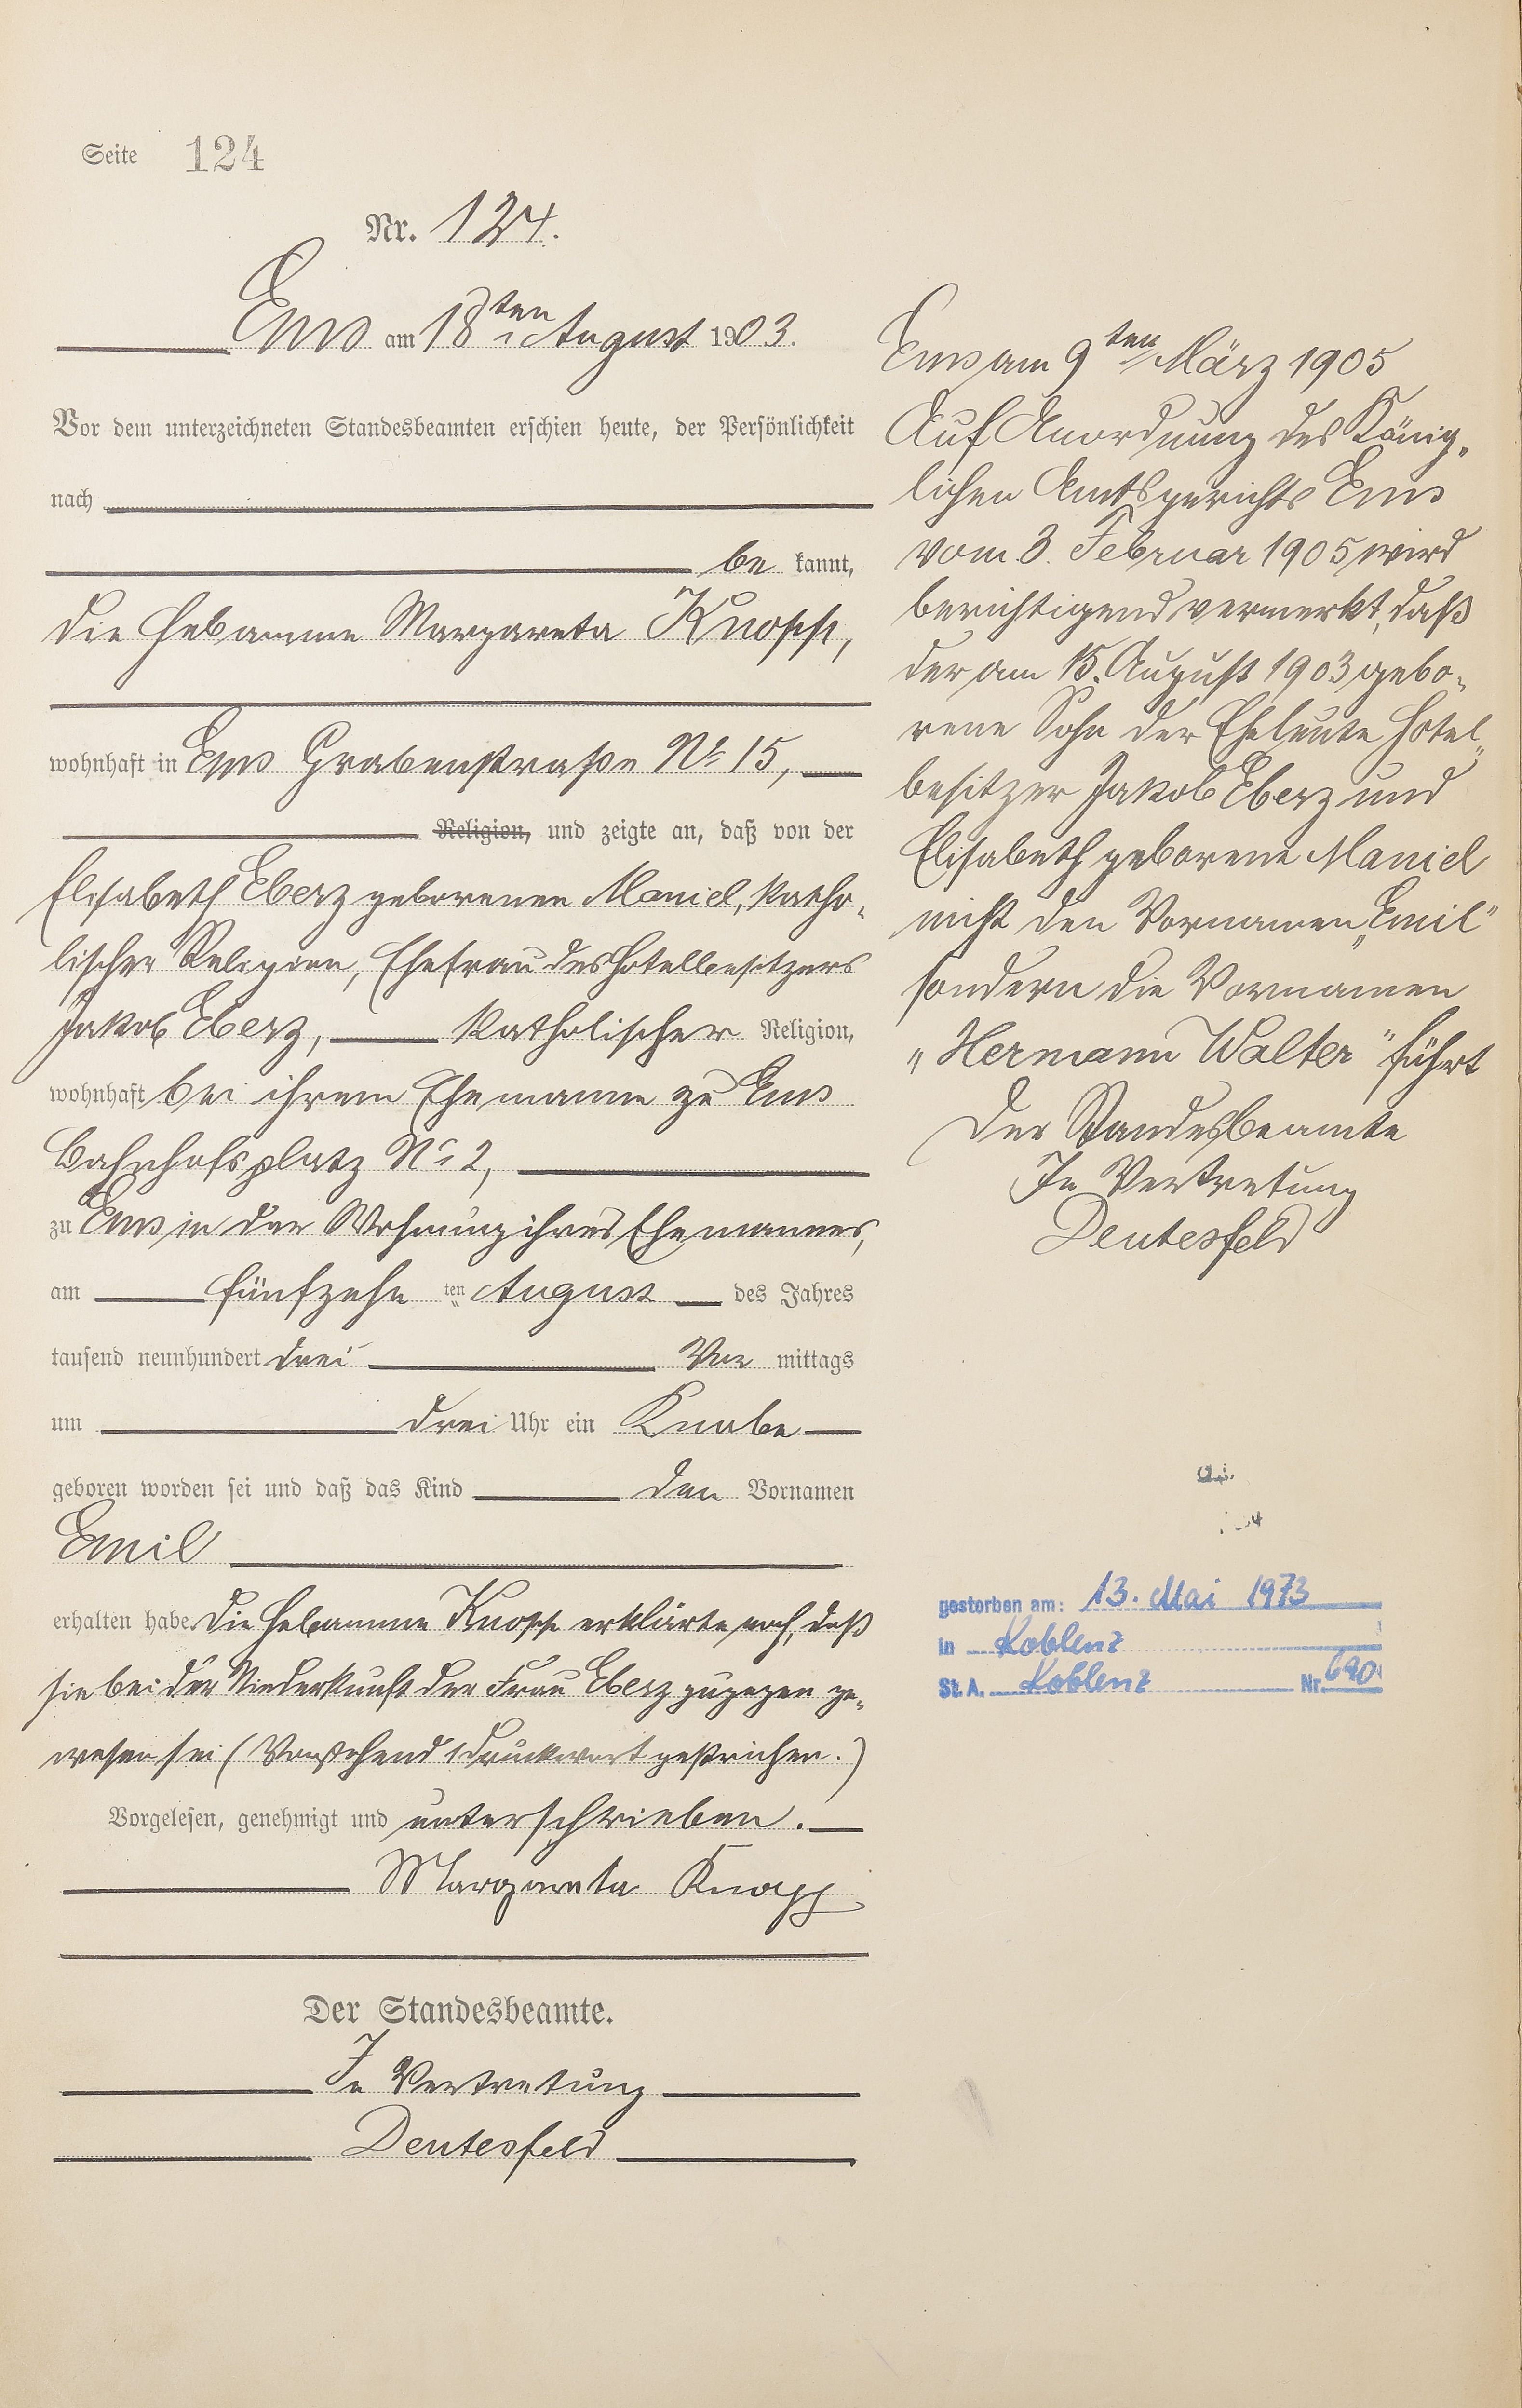 Seite 124
Nr. 124.
Ems am 18ten August 1903.
Vor dem unterzeichneten Standesbeamten erschien heute, der Persönlichkeit
nach
be kannt,
die Hebamme Margareta Knopp,
wohnhaft in Ems Grabenstraße No 15,
Religion, und zeigte an, daß von der
Elisabeth Eberz geborenen Maniel, katho-
lischer Religion, Ehefrau des Hotelbesitzers
Jakob Eberz, katholischer Religion,
wohnhaft bei ihrem Ehemanne zu Ems
Bahnhofsplatz No 2,
zu Ems in der Wohnung ihres Ehemannes,
am fünfzehn ten August des Jahres
tausend neunhundert drei Vor mittags
um drei Uhr ein Knabe
geboren worden sei und daß das Kind den Vornamen
Emil
erhalten habe. Die Hebamme Knopp erklärte noch, daß
sie bei der Niederkunft der Frau Eberz zugegen ge-
wesen sei (Vorstehend 1 Druckwort gestrichen.)
Vorgelesen, genehmigt und unterschrieben.
Margareta Knopp
Der Standesbeamte.
In Vertretung
Deutesfeld
Ems am 9ten März 1905
Auf Anordnung des König-
lichen Amtsgerichts Ems
vom 3. Februar 1905 wird
berichtigend vermerkt, daß
der am 15. August 1903 gebo-
rene Sohn der Eheleute Hotel-
besitzer Jakob Eberz und
Elisabeth geborene Maniel
nicht den Vornamen „Emil"
sondern die Vornamen
„Hermann Walter" führt
Der Standesbeamte
In Vertretung
Deutesfeld
gestorben am: 13. Mai 1973
in Koblenz
St. A. Koblenz Nr. 690